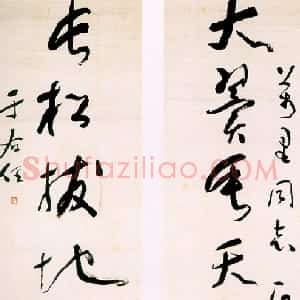 萬里同志
大翼垂天
長松拔地
于右任
Shufaziliao.com